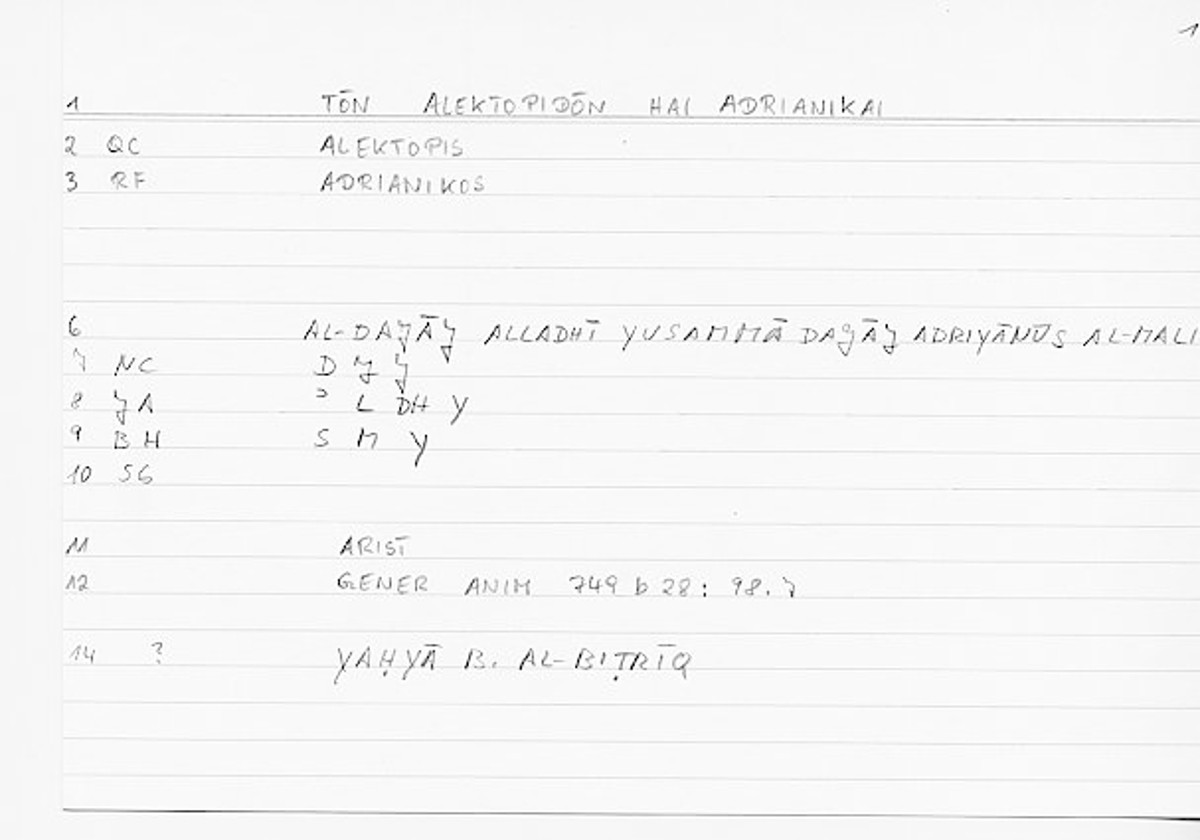 1
1 TŌN ALEKTOPIDŌN HAI ADRIANIKAI
2 QC ALEKTOPIS
3 RF ADRIANIKOS
6 AL-DAJĀJ ALLADHĪ YUSAMMĀ DAJĀJ ADRIYĀNŪS AL-MALI
7 NC D J J
8 JA ᵓ L DH Y
9 BH S M Y
10 SG
11 ARIST
12 GENER ANIM 749 b 28 : 98.7
14 ? YAḤYĀ B. AL-BIṬRĪQ